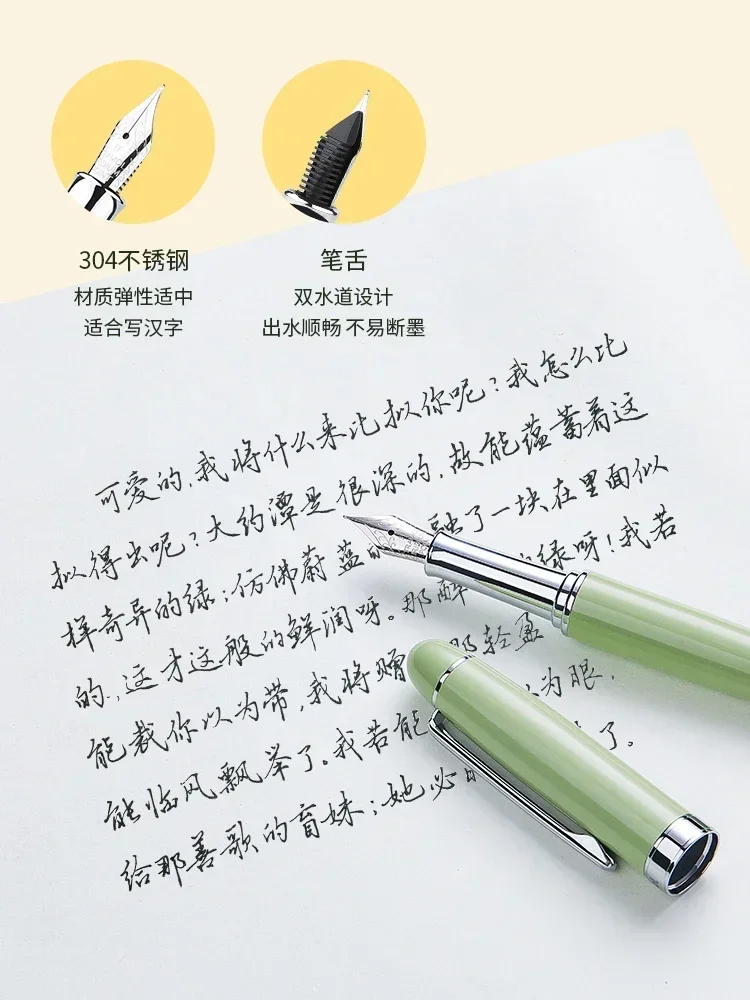 304不锈钢
材质弹性适中
适合写汉字
笔舌
双水道设计
出水顺畅 不易断墨
可爱的,我将什么来比拟你呢?我怎么比
拟得出呢?大约潭是很深的,故能蕴蓄着这
样奇异的绿;仿佛蔚蓝的 融了一块在里面似
的,这才这般的鲜润呀。那醉 绿呀!我若
能裁你以为带,我将赠 那轻盈
能临风飘举了。我若能 以为眼,
给那善歌的盲妹;她必 了。